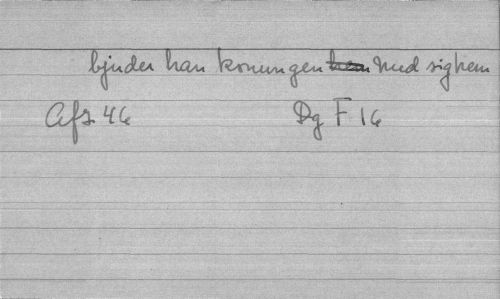 bjuder han konungen med sig hem
Afz 46 Dg F 16